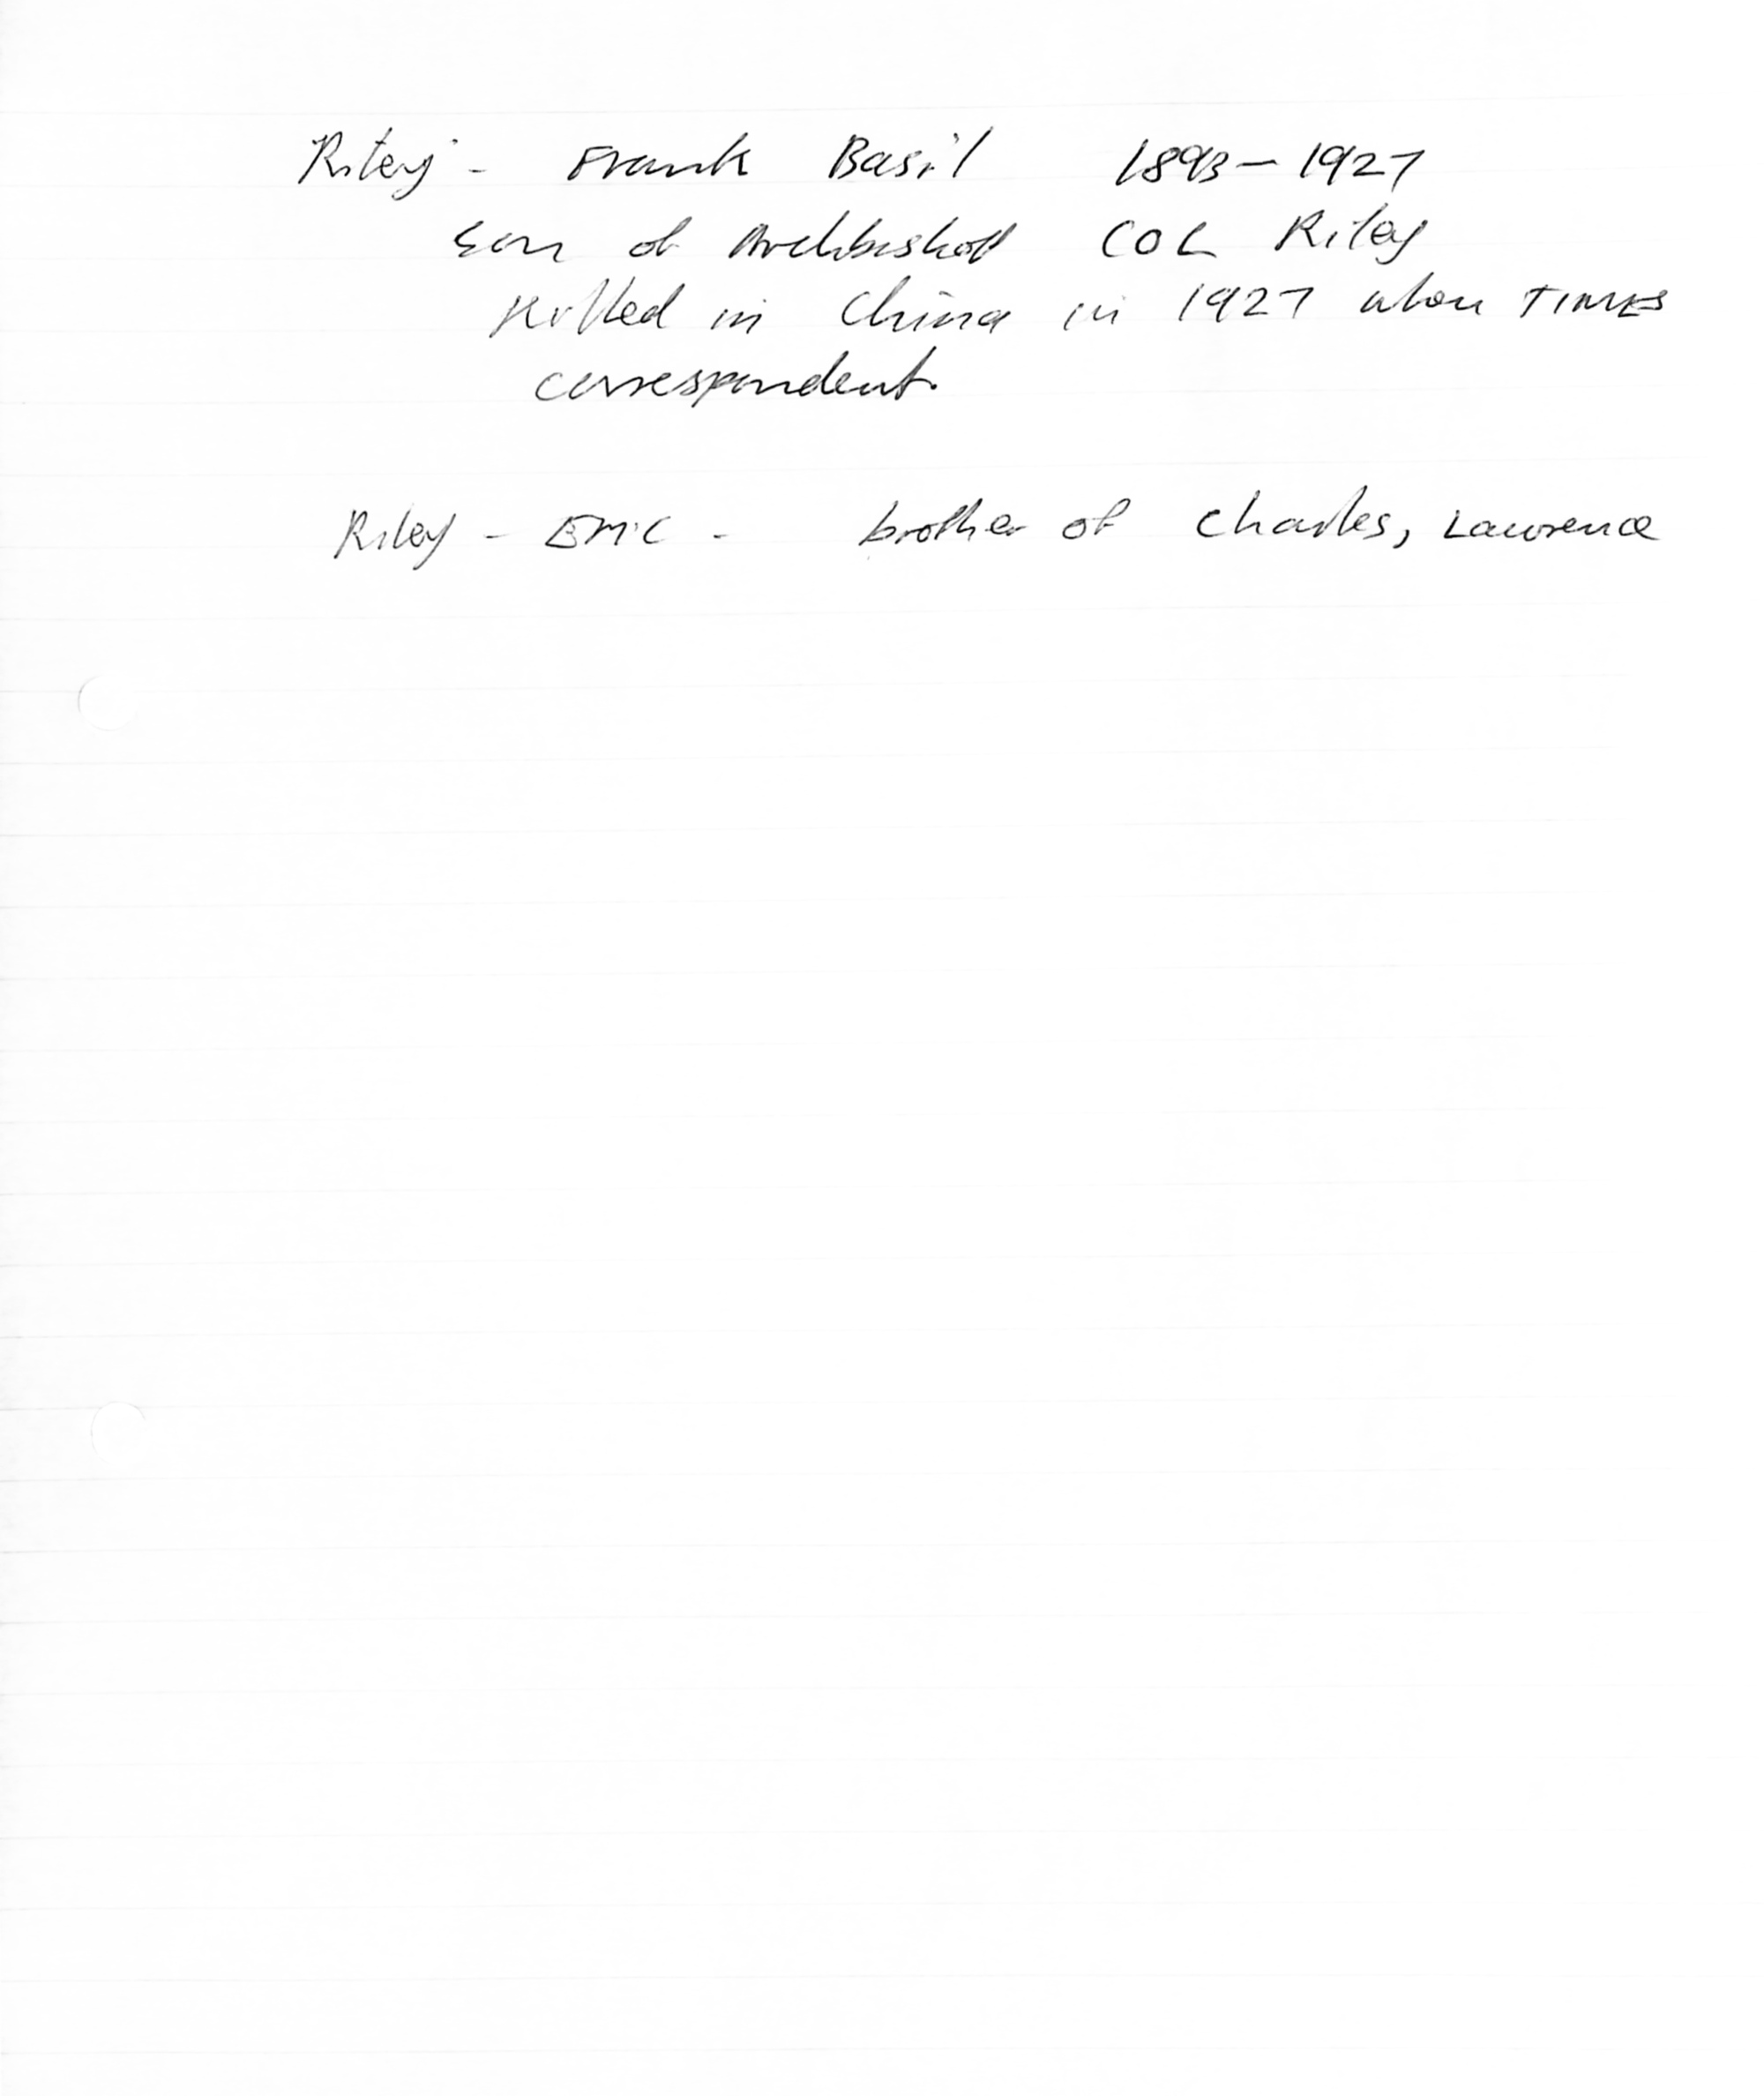 Riley - Frank Basil 1893-1927
son of Archbishop COL Riley
killed in China in 1927 when TIMES
correspondent.
Riley - Eric - brother of Charles, Lawrence